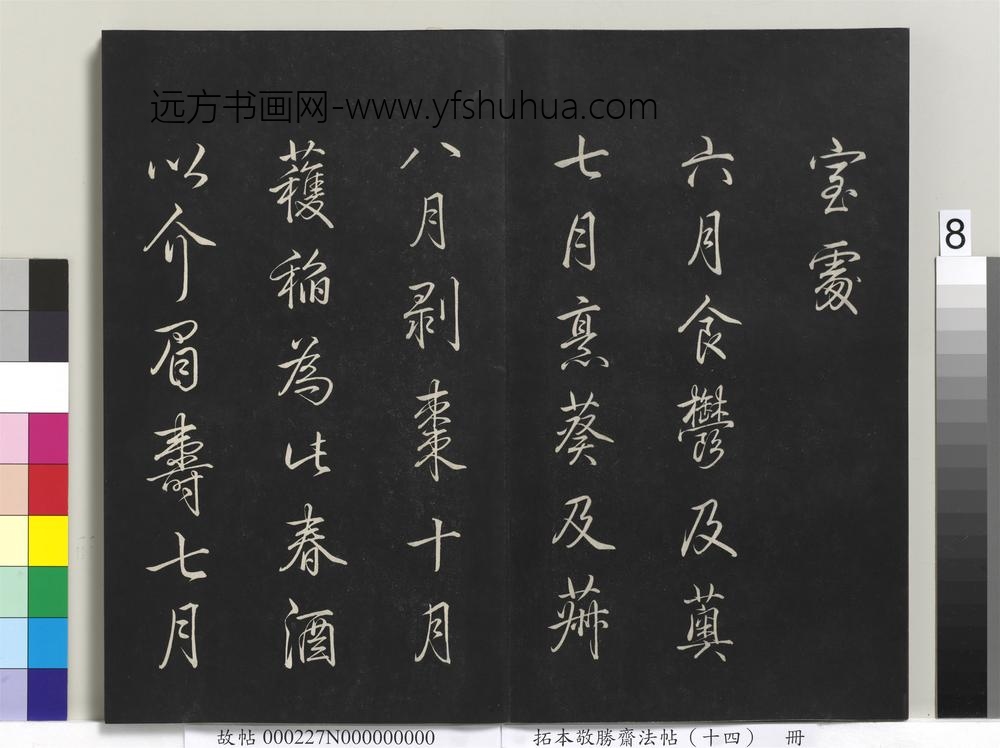 远方书画网-www.yfshuhua.com
室處
六月食鬱及薁
七月烹葵及菽
八月剥棗十月
穫稻為此春酒
以介眉壽七月
8
故帖 000227N000000000
拓本敬勝齋法帖（十四） 冊